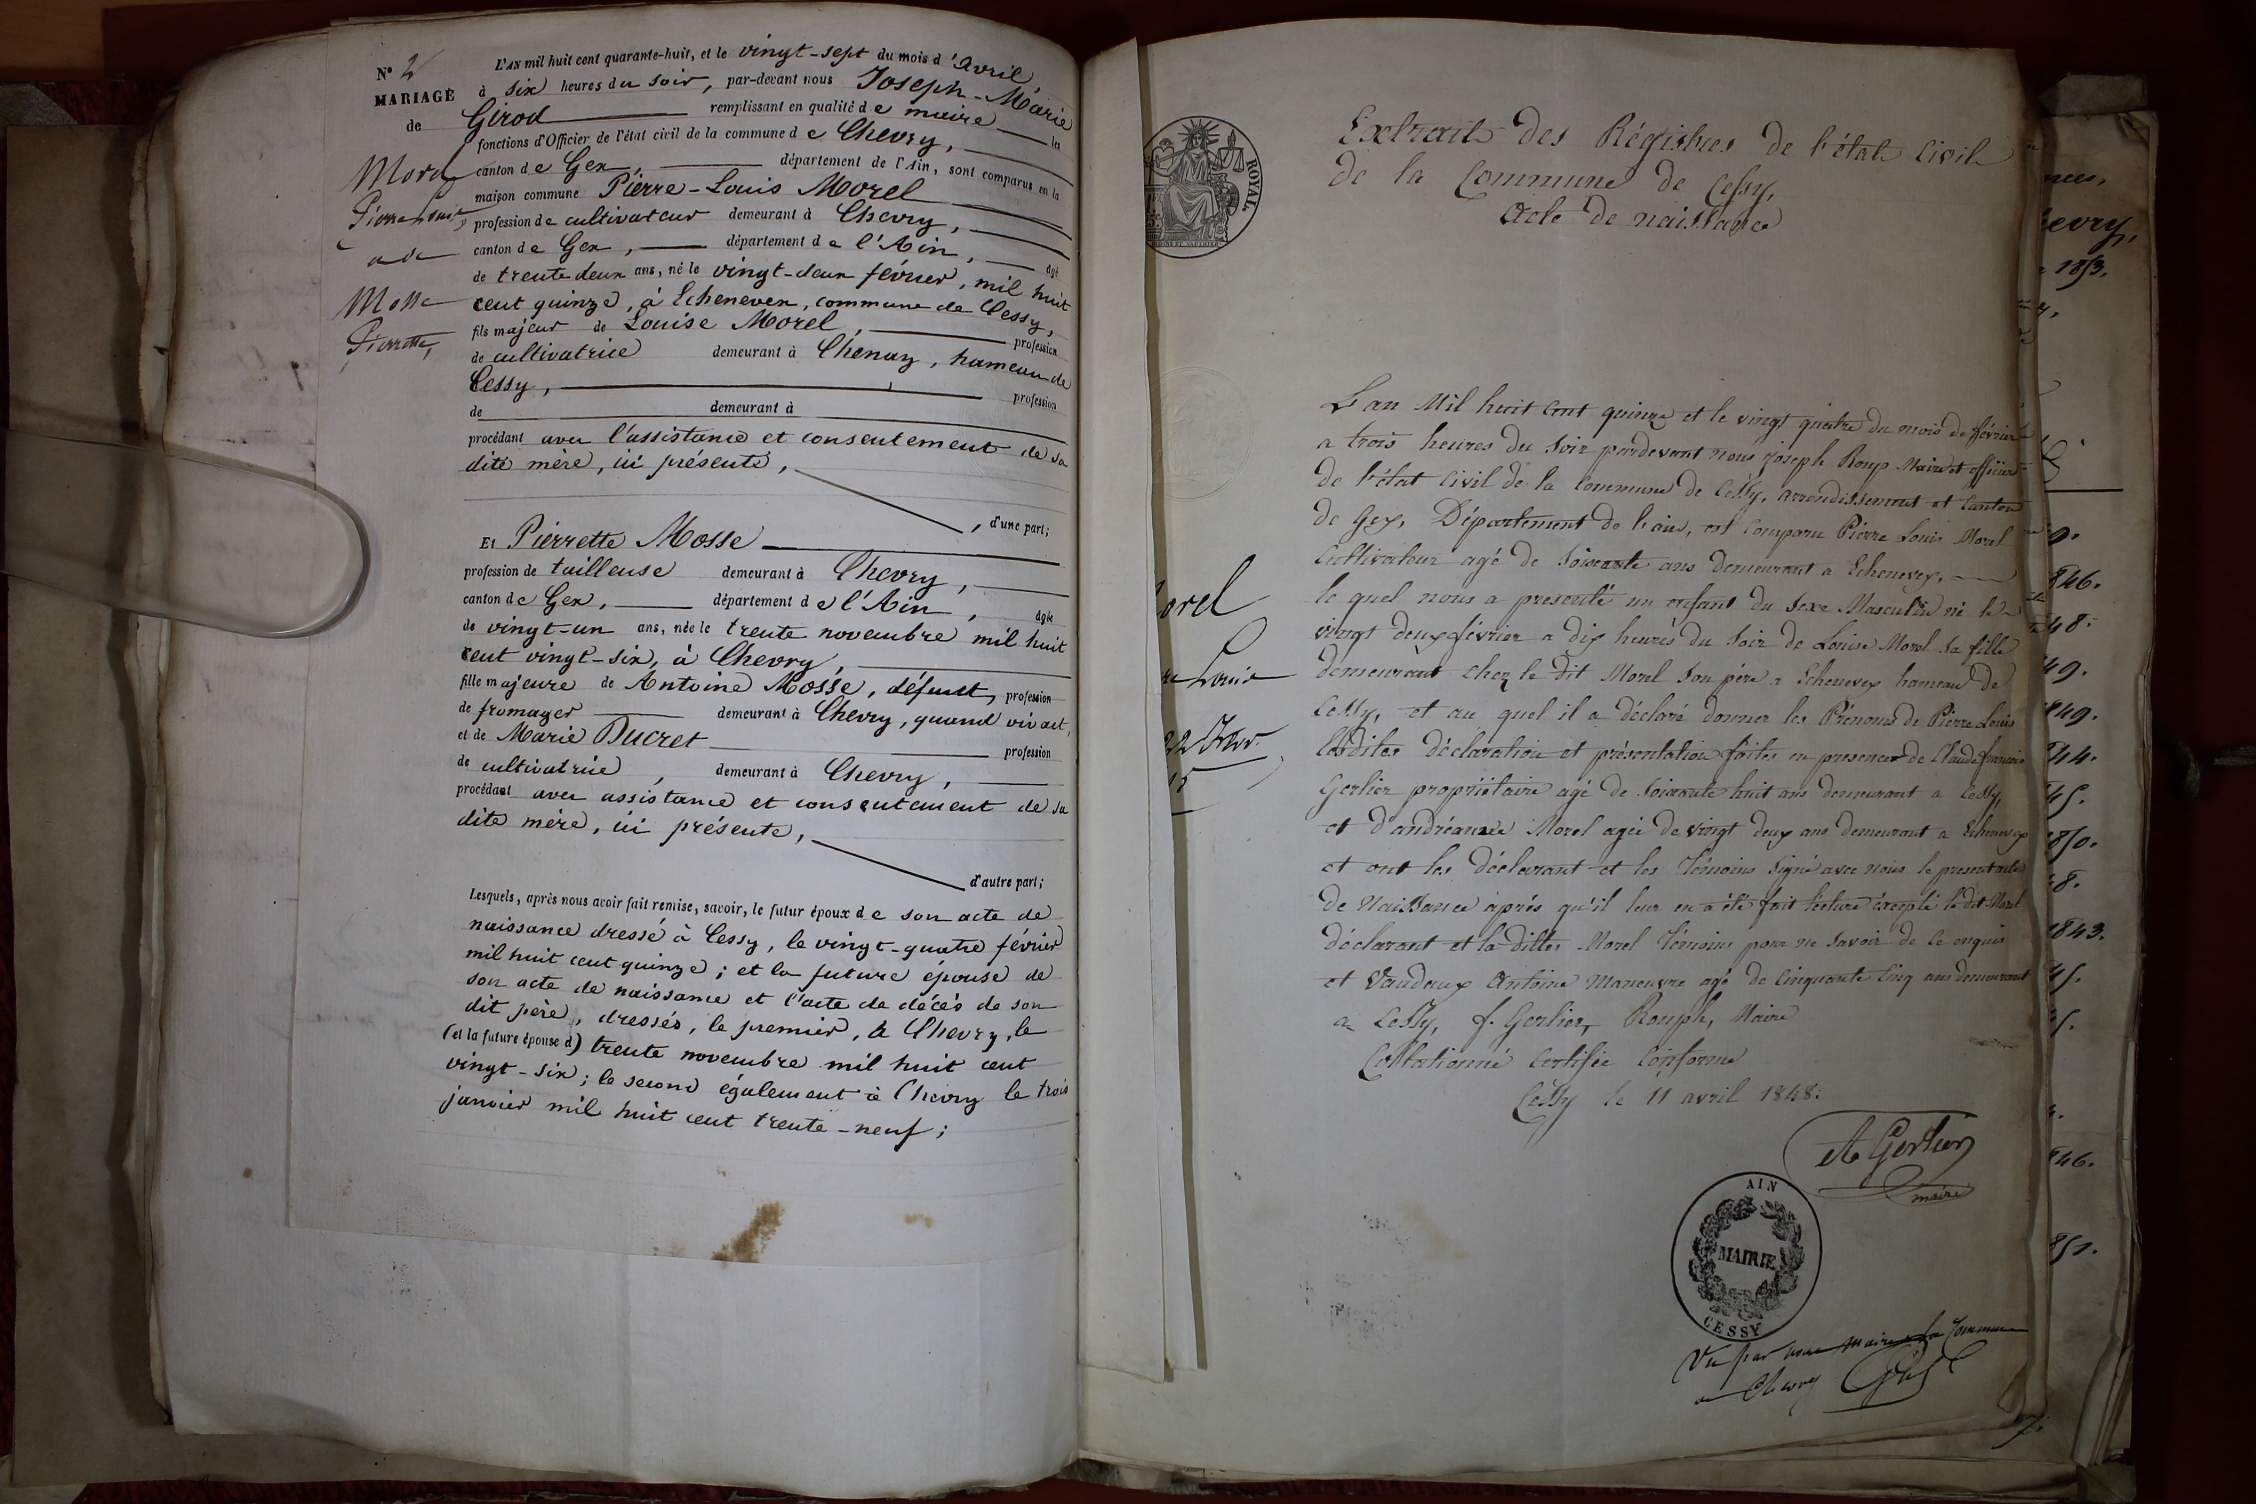 N° 2
MARIAGE
de
Morel
Pierre Louis,
et de
Mosse
Pierrette,
L'AN mil huit cent quarante-huit, et le vingt-sept du mois d'Avril
à six heures du soir, par-devant nous Joseph-Marie
Girod remplissant en qualité de maire les
fonctions d'Officier de l'état civil de la commune de Chevry,
canton de Gex, département de l'Ain, sont comparus en la
maison commune Pierre-Louis Morel
profession de cultivateur demeurant à Chevry,
canton de Gex, département de l'Ain, âgé
de trente deux ans, né le vingt-deux février, mil huit
cent quinze, à Echenevex, commune de Cessy,
fils majeur de Louise Morel, profession
de cultivatrice demeurant à Chenaz, hameau de
Cessy, profession
de demeurant à
procédant avec l'assistance et consentement de sa
dite mère, ici présente,
, d'une part;
Et Pierrette Mosse
profession de tailleuse demeurant à Chevry,
canton de Gex, département de l'Ain, âgée
de vingt-un ans, née le trente novembre mil huit
cent vingt-six, à Chevry,
fille majeure de Antoine Mosse, défunt, profession
de fromager demeurant à Chevry, quand vivait,
et de Marie Ducret profession
de cultivatrice, demeurant à Chevry,
procédant avec assistance et consentement de sa
dite mère, ici présente,
d'autre part;
Lesquels, après nous avoir fait remise, savoir, le futur époux de son acte de
naissance dressé à Cessy, le vingt-quatre février
mil huit cent quinze; et la future épouse de
son acte de naissance et l'acte de décès de son
dit père, dressés, le premier, à Chevry, le
(et la future épouse d) trente novembre mil huit cent
vingt-six; le second également à Chevry le trois
janvier mil huit cent trente-neuf;
ROYAL.
Extrait des Régistres de l'état Civil
de la Commune de Cessy,
Acte de naissance
orel
re Louis
22 Fevr.
15
L'an Mil huit cent quinze et le vingt quatre du mois de février
a trois heures du soir pardevant nous joseph Rouph Maire et officier
de l'état Civil de la Commune de Cessy, arrondissement et Canton
de Gex, Département de l'ain, est comparu Pierre Louis Morel
Cultivateur agé de soixante ans demeurant a Echenevex,
le quel nous a presenté un enfant du sexe Masculin né le
vingt deux février a dix heures du soir de Louise Morel sa fille
demeurant chez le dit Morel son père a Echenevex hameau de
Cessy, et au quel il a déclaré donner les Prénoms de Pierre Louis
lesdites déclaration et présentation faites en presence de Claude françois
Gerlier propriétaire agé de soixante huit ans demeurant a Cessy,
et d'andréanne Morel agée de vingt deux ans demeurant a Echenevex
et ont les déclarant et les témoins signé avec nous le present acte
de Naissance après qu'il leur en a été fait lecture excepté le dit Morel
déclarant et la dittes Morel témoins pour ne savoir de ce enquis
et Vaudaux Antoine Maneuvre agé de cinquante cinq ans demeurant
a Cessy, f. Gerlier, Rouph, Maire
Collationné Certifié Conforme
Cessy le 11 avril 1848.
Gerlier
maire
AIN
MAIRIE
CESSY
Vu par nous Maire de la Commune
de Chevry
evry,
1853.
846.
48.
49.
849.
844.
45.
1850.
8.
1843.
45.
846.
851.